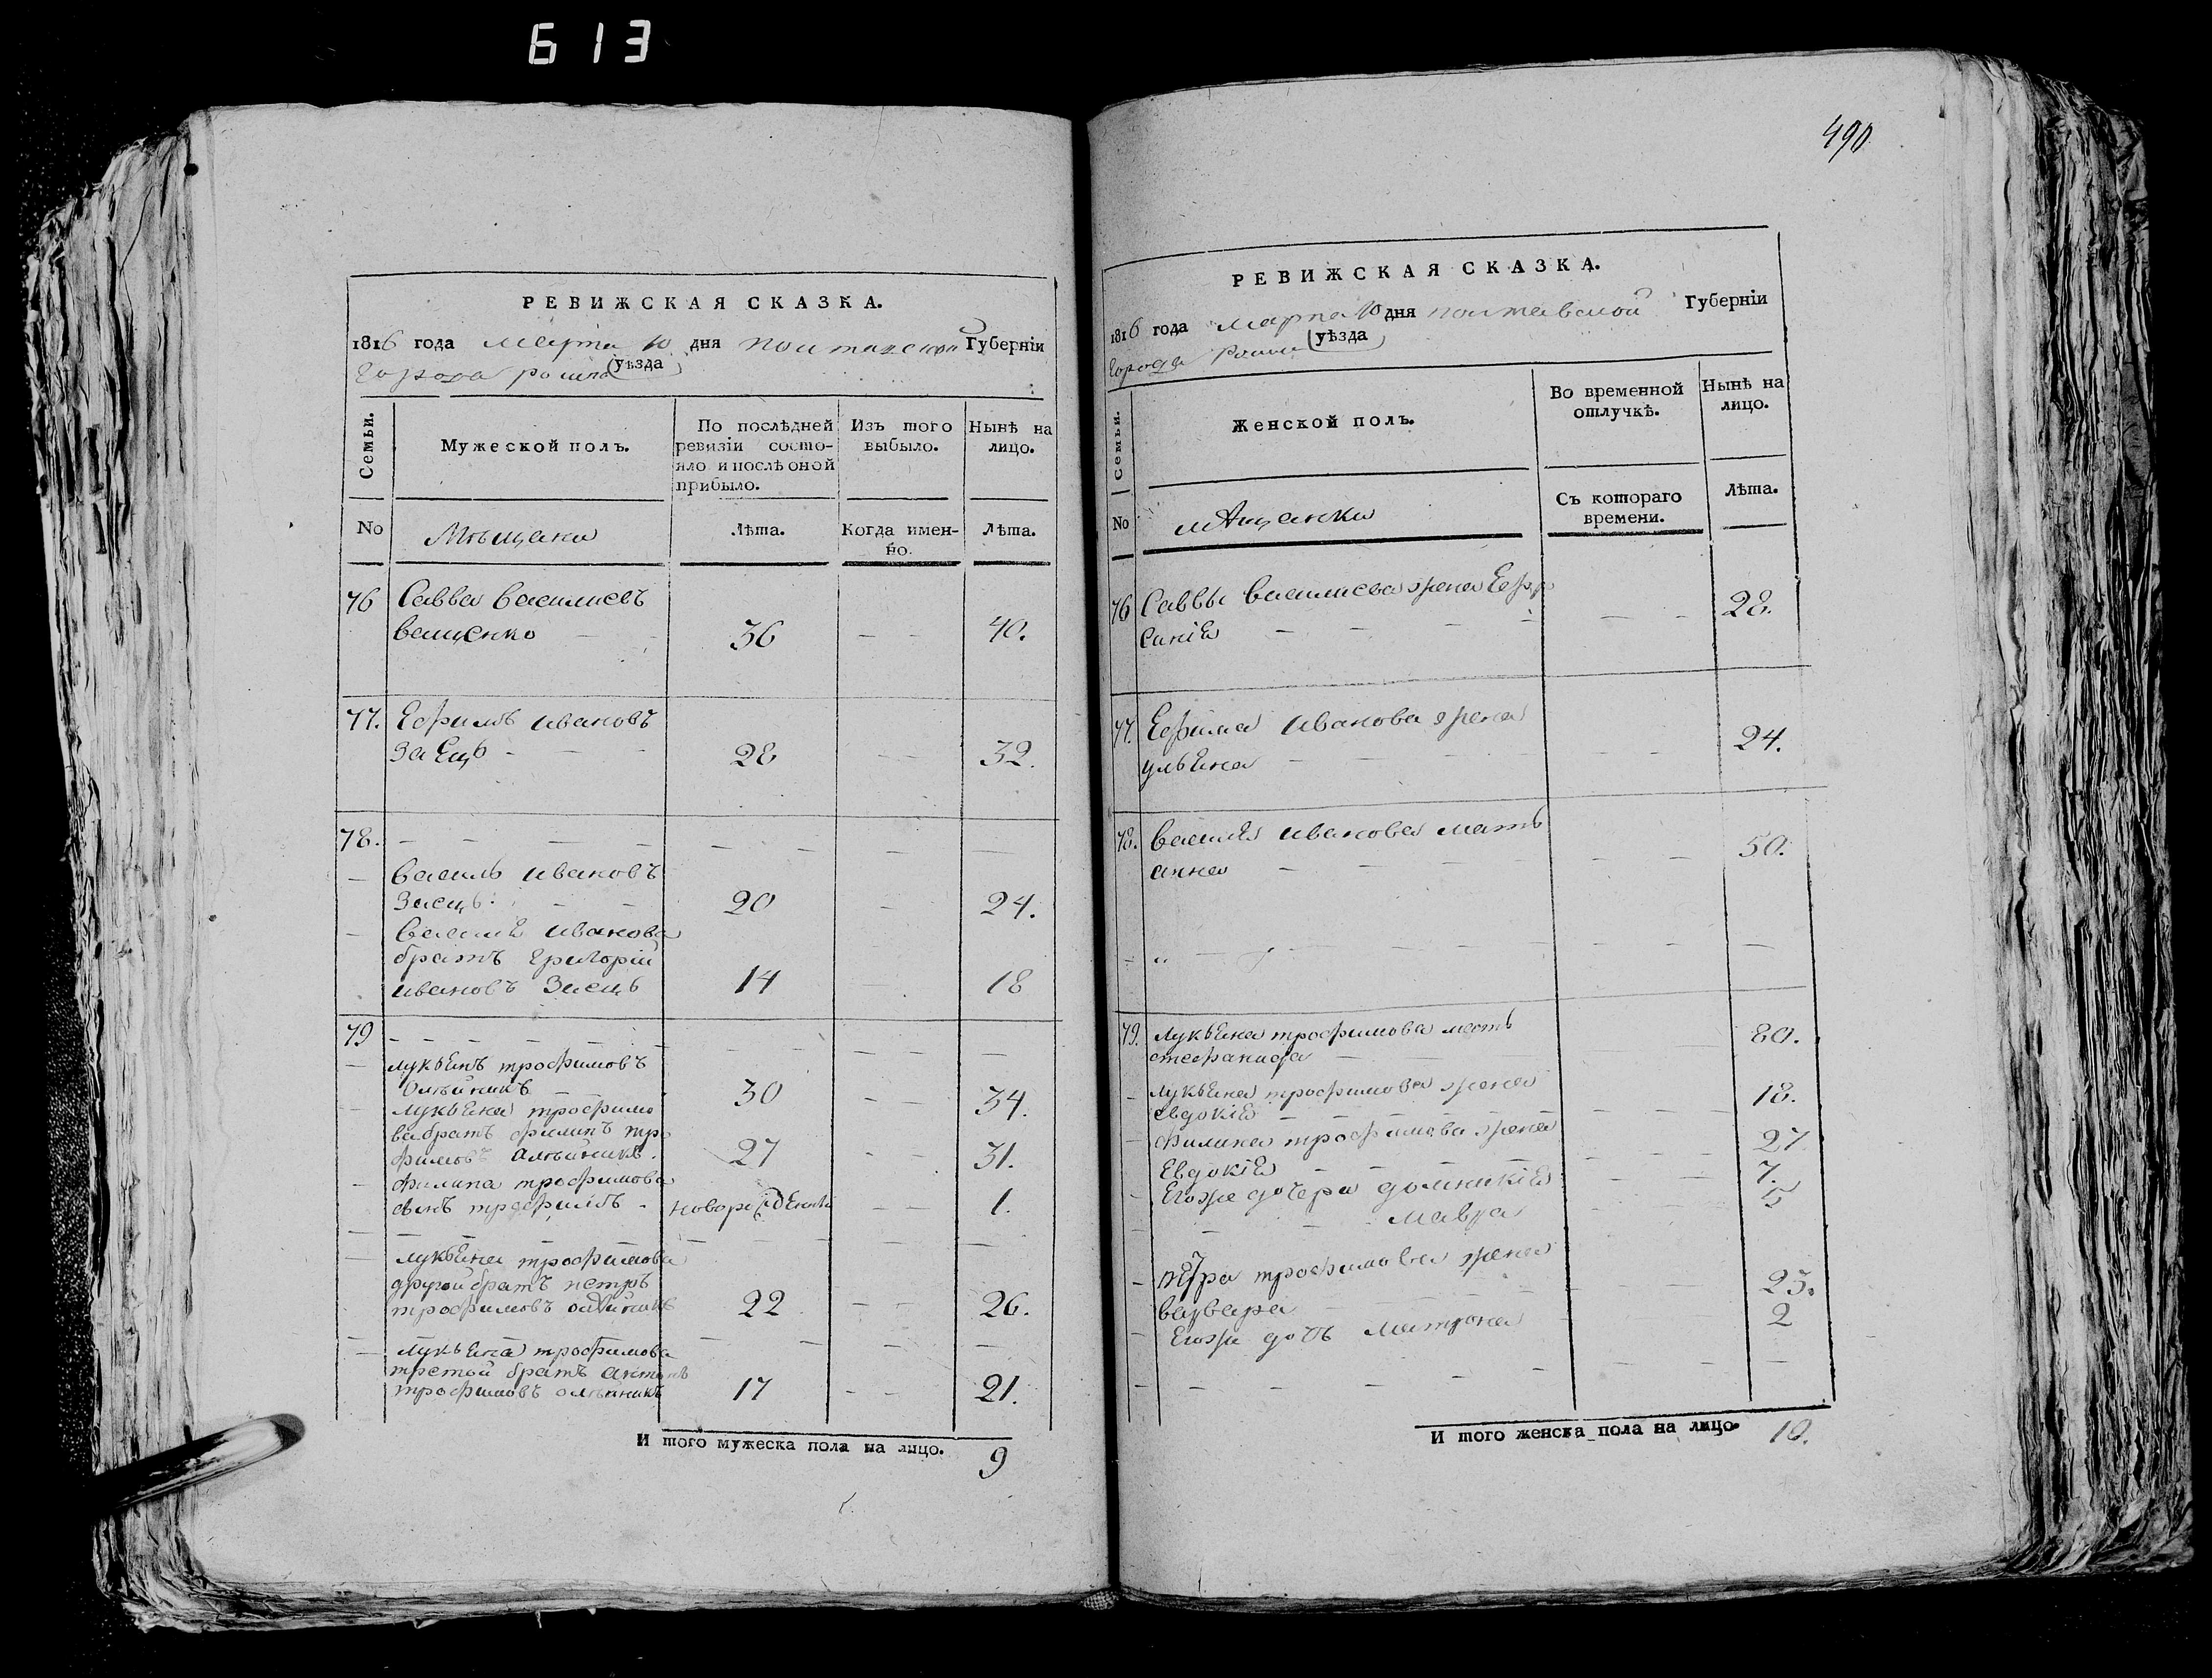 613
РЕВИЖСКАЯ СКАЗКА.
1816 года марта 10 дня полтавской Губерніи
Города ромна уѣзда
Семьи.
Мужеской полъ.
По послѣдней ревизіи состо-
яло и послѣ оной
прибыло.
Изъ того выбыло.
Нынѣ на лицо.
No
Мѣщане
Лѣта.
Когда имен-
но.
Лѣта.
76 Савва василиевъ
ващенко - 36 - 40.
77. Ефимъ ивановъ
заЕцъ - 28 - 32.
78.
василь ивановъ
Заецъ: 20 - 24.
василя иванова
братъ григорій
ивановъ Заецъ 14 18
79
лукьянъ трофимовъ
Олѣйникъ 30 - 34.
лукьяна трофимо
ва братъ филипъ тро
фимовъ олѣйникъ. 27 - 31.
филипа трофимова
сынъ трофимъ - новорожденъ - 1.
лукьяна трофимова
другой братъ петръ
трофимовъ олѣйникъ 22 - 26.
лукьяна трофимова
третой братъ антонъ
трофимовъ олѣйникъ 17 - 21.
И того мужеска пола на лицо. 9
490
РЕВИЖСКАЯ СКАЗКА.
1816 года марта 10 дня полтавской Губерніи
Города Ромна уѣзда
Семьи.
Женской полъ.
Во временной
отлучкѣ.
Нынѣ на
лицо.
No
мѣщанки
Съ котораго
времени.
Лѣта.
76 Саввы василиева жена Ефро
синія - 28.
77. Ефима иванова жена
ульяна - 24.
78. василя иванова мать
анна - 50.
79. лукьяна трофимова мать
стефанида - 80.
лукьяна трофимова жена
евдокія - 18.
филипа трофимова жена
Евдокія - 27
Егоже дочери домникія 7.
мавра 5
петра трофимова жена
варвара 23.
Егоже дочь матрона 2
И того женска пола на лицо. 10.